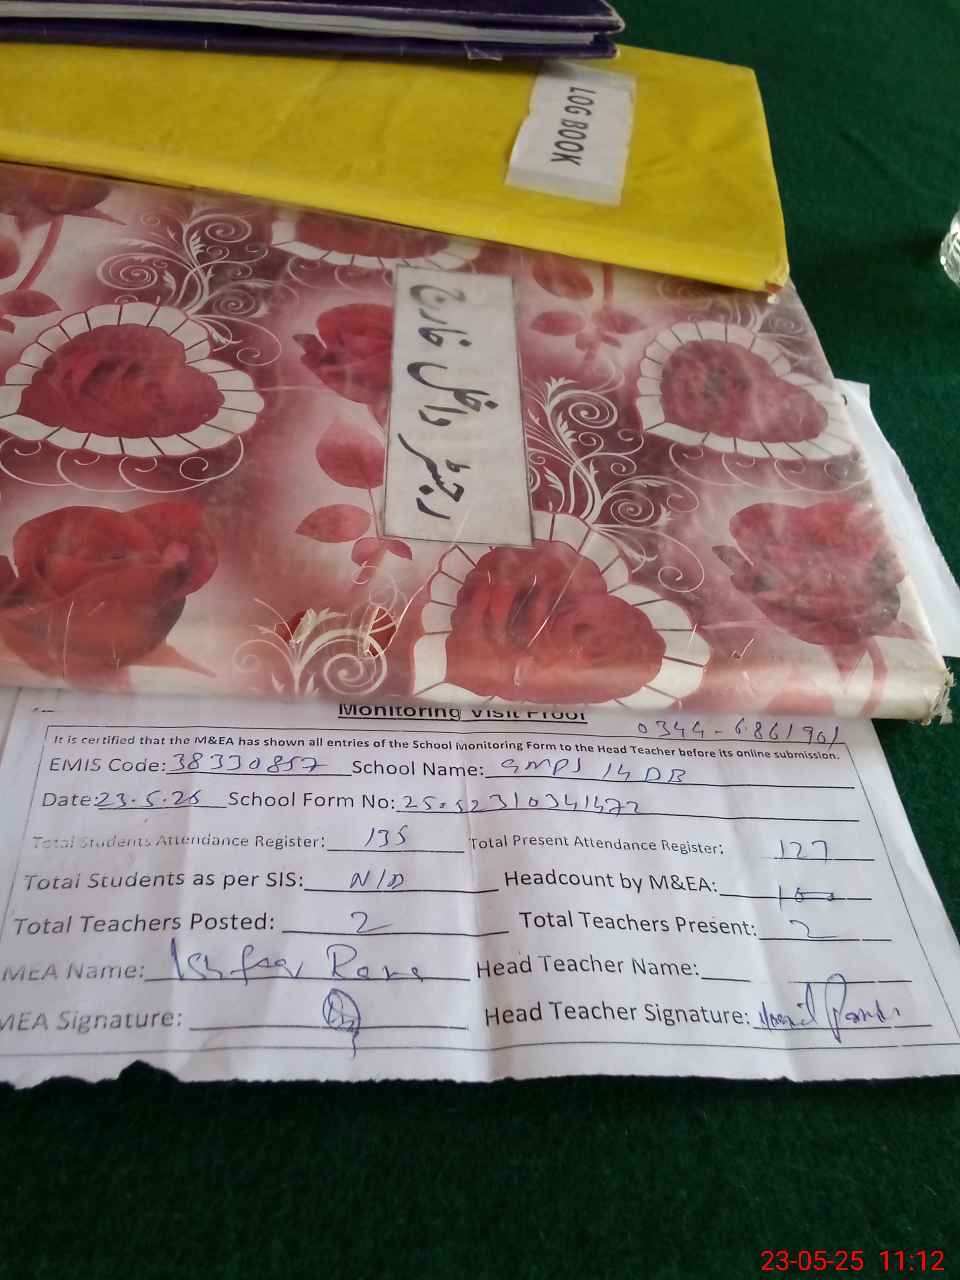 LOG BOOK
رجسٹر داخل خارج
Monitoring Visit Proof
0344-6861901
It is certified that the M&EA has shown all entries of the School Monitoring Form to the Head Teacher before its online submission.
EMIS Code: 38330857 School Name: GMPS 14 DB
Date: 23.5.25 School Form No:
Total Students Attendance Register: 135 Total Present Attendance Register: 127
Total Students as per SIS: N/D Headcount by M&EA:
Total Teachers Posted: 2 Total Teachers Present: 2
MEA Name: Ishfaq Rana Head Teacher Name:
MEA Signature: Head Teacher Signature:
23-05-25 11:12